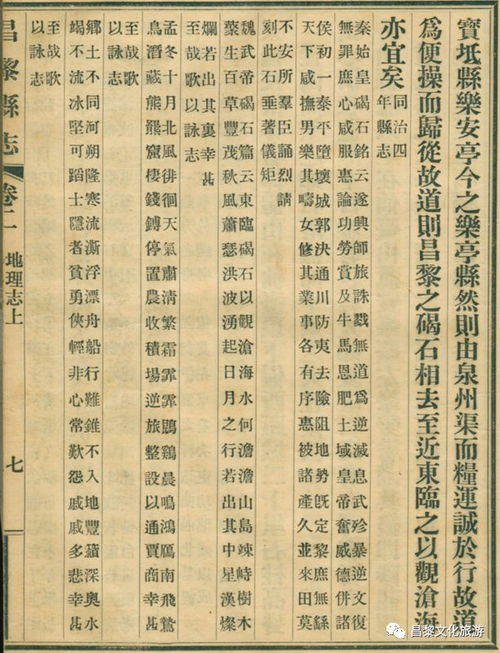 寶坻縣樂安亭今之樂亭縣然則由泉州渠而糧運誠於行故道
爲便操而歸從故道則昌黎之碣石相去至近東臨之以觀滄海
亦宜矣
同治四
年縣志
秦始皇碣石銘云遂興師旅誅戮無道爲逆滅息武殄暴逆文復
無罪庶心咸服惠論功勞賞及牛馬恩肥土域皇帝奮威德併諸
侯初一泰平墮壞城郭決通川防夷去險阻地勢旣定黎庶無繇
天下咸撫男樂其疇女修其業事各有序惠被諸產久並來田莫
不安所羣臣誦烈請
刻此石垂著儀矩
魏武帝碣石篇云東臨碣石以觀滄海水何澹澹山島竦峙樹木
藂生百草豐茂秋風蕭瑟洪波湧起日月之行若出其中星漢燦
爛若出其裏幸甚
至哉歌以詠志
孟冬十月北風徘徊天氣肅清繁霜霏霏鵾鷄晨鳴鴻鴈南飛鷙
鳥潛藏熊羆窟棲錢鎛停置農收積場逆旅整設以通賈商幸甚
至哉歌
以詠志
鄉土不同河朔隆寒流澌浮漂舟船行難錐不入地豐籟深奧水
竭不流冰堅可蹈士隱者貧勇俠輕非心常歎怨戚戚多悲幸甚
至哉歌
以詠志
昌黎縣志 卷二 地理志上 七
昌黎文化旅游